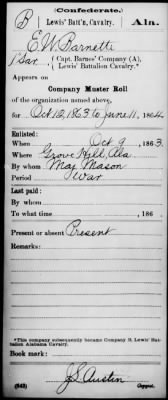 (Confederate.)
B Lewis' Batt'n, Cavalry. Ala.
E W Barnette
1 Sar, Capt. Barnes' Company (A), Lewis' Battalion Cavalry.*
Appears on
Company Muster Roll
of the organization named above,
for Oct 12, 1863 to June 11, 1864
Enlisted:
When Oct 9, 1863.
Where Grove Hill, Ala
By whom Maj Mason
Period War
Last paid:
By whom
To what time , 186
Present or absent Present
Remarks:
*This company subsequently became Company B, Lewis' Battalion Alabama Cavalry.
Book mark:
J S Austin
(642) Copyist.